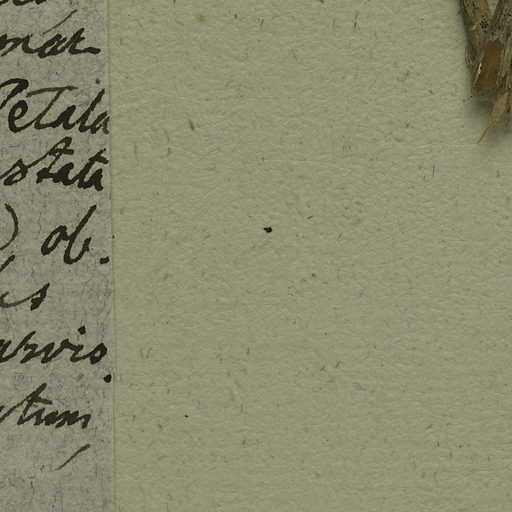 mar
Petala
otata
) ob.
is
arvio.
tum